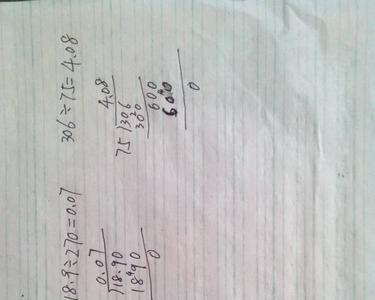 18.9÷270=0.07
0.07
)18.90
1890
0
306÷75=4.08
4.08
75)306
300
600
600
0